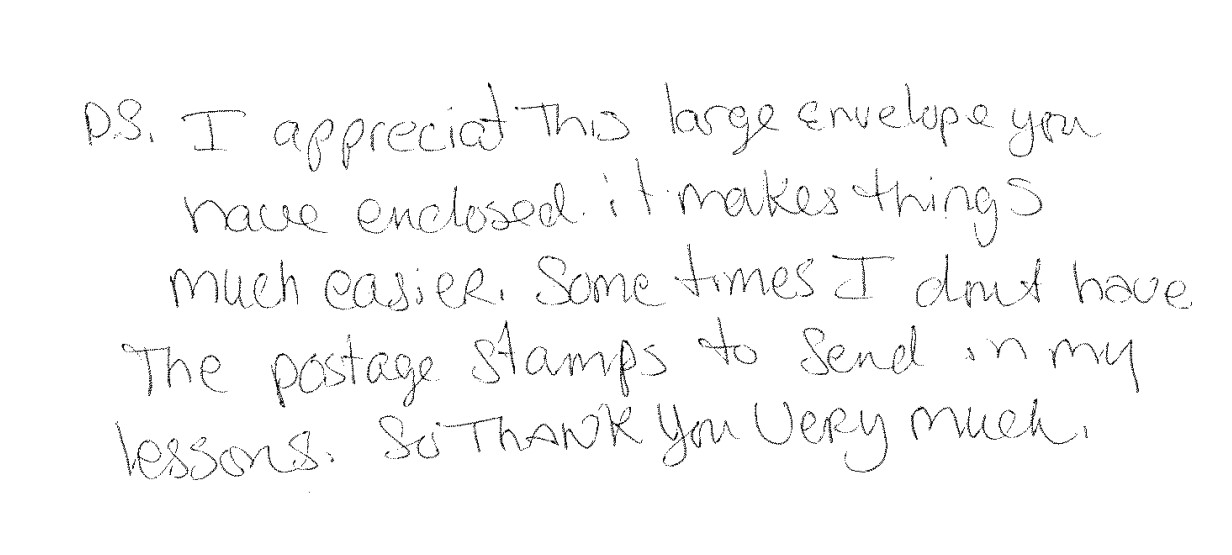 P.S. I appreciat This large envelope you
have enclosed. it makes things
much easier. Some times I don't have
The postage stamps to send in my
lessons. So THANK you very much.